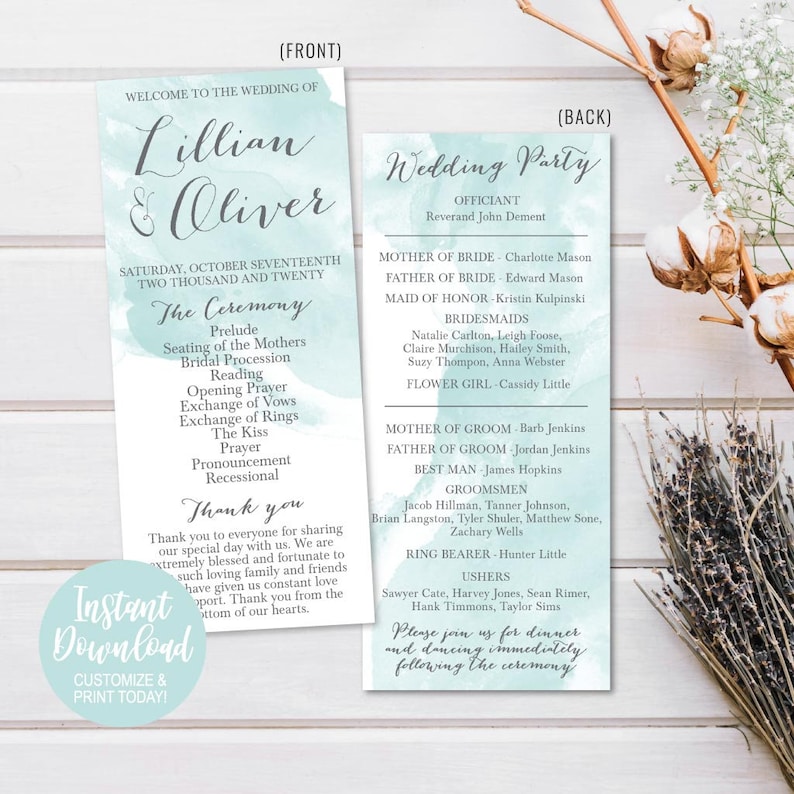 (FRONT)
WELCOME TO THE WEDDING OF
Lillian
& Oliver
SATURDAY, OCTOBER SEVENTEENTH
TWO THOUSAND AND TWENTY
The Ceremony
Prelude
Seating of the Mothers
Bridal Procession
Reading
Opening Prayer
Exchange of Vows
Exchange of Rings
The Kiss
Prayer
Pronouncement
Recessional
Thank you
Thank you to everyone for sharing
our special day with us. We are
extremely blessed and fortunate to
such loving family and friends
have given us constant love
support. Thank you from the
bottom of our hearts.
(BACK)
Wedding Party
OFFICIANT
Reverand John Dement
MOTHER OF BRIDE - Charlotte Mason
FATHER OF BRIDE - Edward Mason
MAID OF HONOR - Kristin Kulpinski
BRIDESMAIDS
Natalie Carlton, Leigh Foose,
Claire Murchison, Hailey Smith,
Suzy Thompon, Anna Webster
FLOWER GIRL - Cassidy Little
MOTHER OF GROOM - Barb Jenkins
FATHER OF GROOM - Jordan Jenkins
BEST MAN - James Hopkins
GROOMSMEN
Jacob Hillman, Tanner Johnson,
Brian Langston, Tyler Shuler, Matthew Sone,
Zachary Wells
RING BEARER - Hunter Little
USHERS
Sawyer Cate, Harvey Jones, Sean Rimer,
Hank Timmons, Taylor Sims
Please join us for dinner
and dancing immediately
following the ceremony
Instant
Download
CUSTOMIZE &
PRINT TODAY!